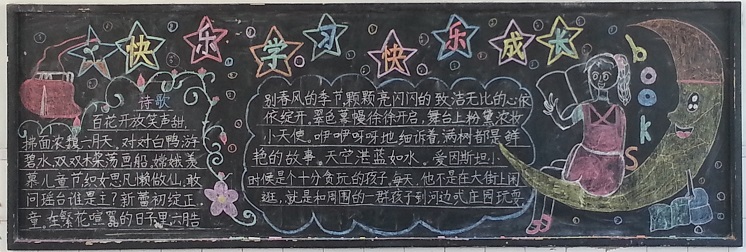 快乐学习快乐成长
诗歌
百花开放笑声甜,
拂面浓馥六月天。对对白鸭,游
碧水,双双木桨荡画船,嫦娥羡
慕儿童节,织女思凡懒做仙,敢
问瑶台谁是主?新蕾初绽正
童,在繁花喧嚣的日子里六月
别春风的季节,颗颗亮闪闪的致洁无比的心依
依绽开,翠色幕幔徐徐开启,舞台上粉黛浓妆
小天使。咿咿呀呀地细诉着,满树都是鲜
艳的故事。天空湛蓝如水。爱因斯坦小
时候是个十分贪玩的孩子,每天,他不是在大街上闲
逛,就是和周围的一群孩子到河边或庄园玩耍
books